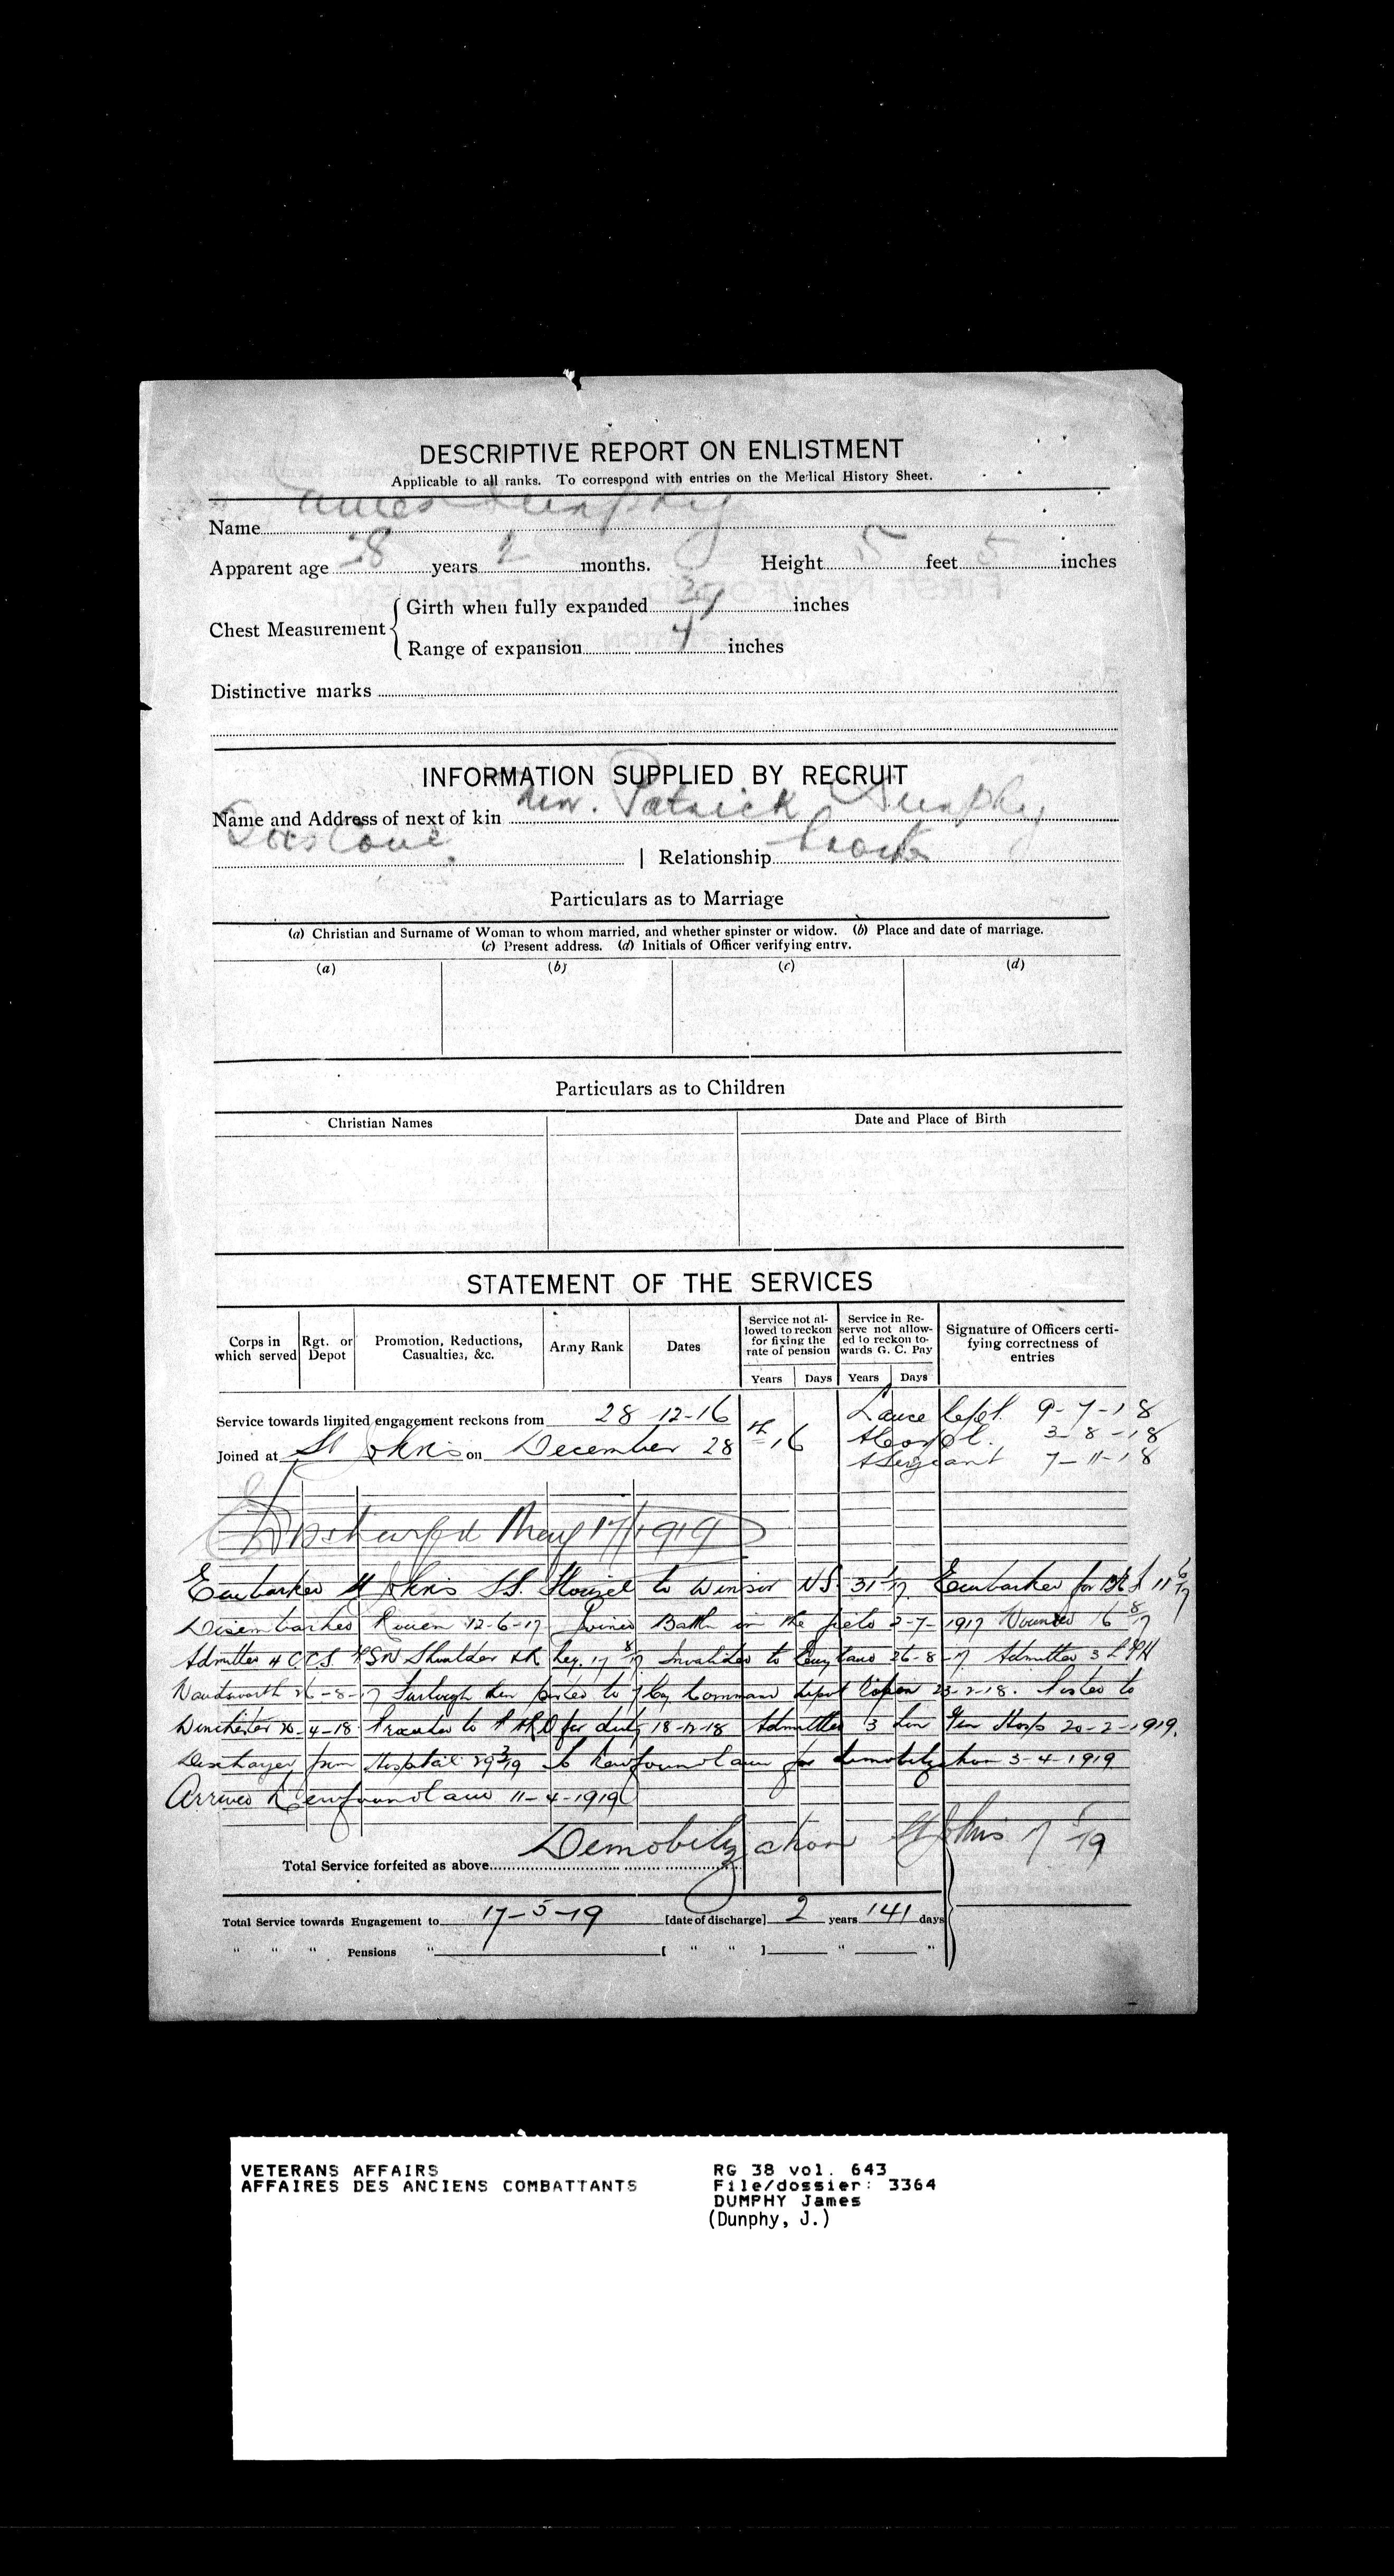 DESCRIPTIVE REPORT ON ENLISTMENT
Applicable to all ranks. To correspond with entries on the Medical History Sheet.
Name James Dunphy
Apparent age 28 years 2 months. Height 5 feet 5 inches
Chest Measurement { Girth when fully expanded 37 inches
Range of expansion 4 inches
Distinctive marks
INFORMATION SUPPLIED BY RECRUIT
Name and Address of next of kin Patrick Dunphy
| Relationship
Particulars as to Marriage
(a) Christian and Surname of Woman to whom married, and whether spinster or widow. (b) Place and date of marriage.
(c) Present address. (d) Initials of Officer verifying entry.
(a) (b) (c) (d)
Particulars as to Children
Christian Names Date and Place of Birth
STATEMENT OF THE SERVICES
Corps in which served Rgt. or Depot Promotion, Reductions, Casualties, &c. Army Rank Dates Service not allowed to reckon for fixing the rate of pension Service in Reserve not allowed to reckon towards G. C. Pay Signature of Officers certifying correctness of entries
Years Days Years Days
Service towards limited engagement reckons from 28-12-16 Lance Cpl. 9-7-18
Joined at St Johns on December 28th 16 A Corpl. 3-8-18
A Sergeant 7-11-18
Discharged May 17/1919
Embarked St Johns S.S. Florizel to Winsor N.S. 31-1-17. Embarked for B.E.F 11-6-17
Disembarked Rouen 12-6-17 Joined Battn in the field 2-7-1917 Wounded 16-8-17
Admitted 4 C.C.S. GSW Shoulder & R Leg. 17-8-17 Invalided to England 26-8-17 Admitted 3 L G H
Wandsworth 26-8-17 Furlough then posted to Command Depot 23-2-18. Posted to
Winchester 20-4-18 Proceeded to for duty 18-12-18 Admitted 3 Lon Gen Hosp 20-2-1919.
Discharged from Hospital 29-3-19 To Newfoundland for demobilization 3-4-1919
Arrived Newfoundland 11-4-1919
Demobilization St Johns 17-5-19
Total Service forfeited as above
Total Service towards Engagement to 17-5-19 [date of discharge] 2 years 141 days
" " " Pensions " [ " " ] " "
VETERANS AFFAIRS RG 38 vol. 643
AFFAIRES DES ANCIENS COMBATTANTS File/dossier: 3364
DUMPHY James
(Dunphy, J.)